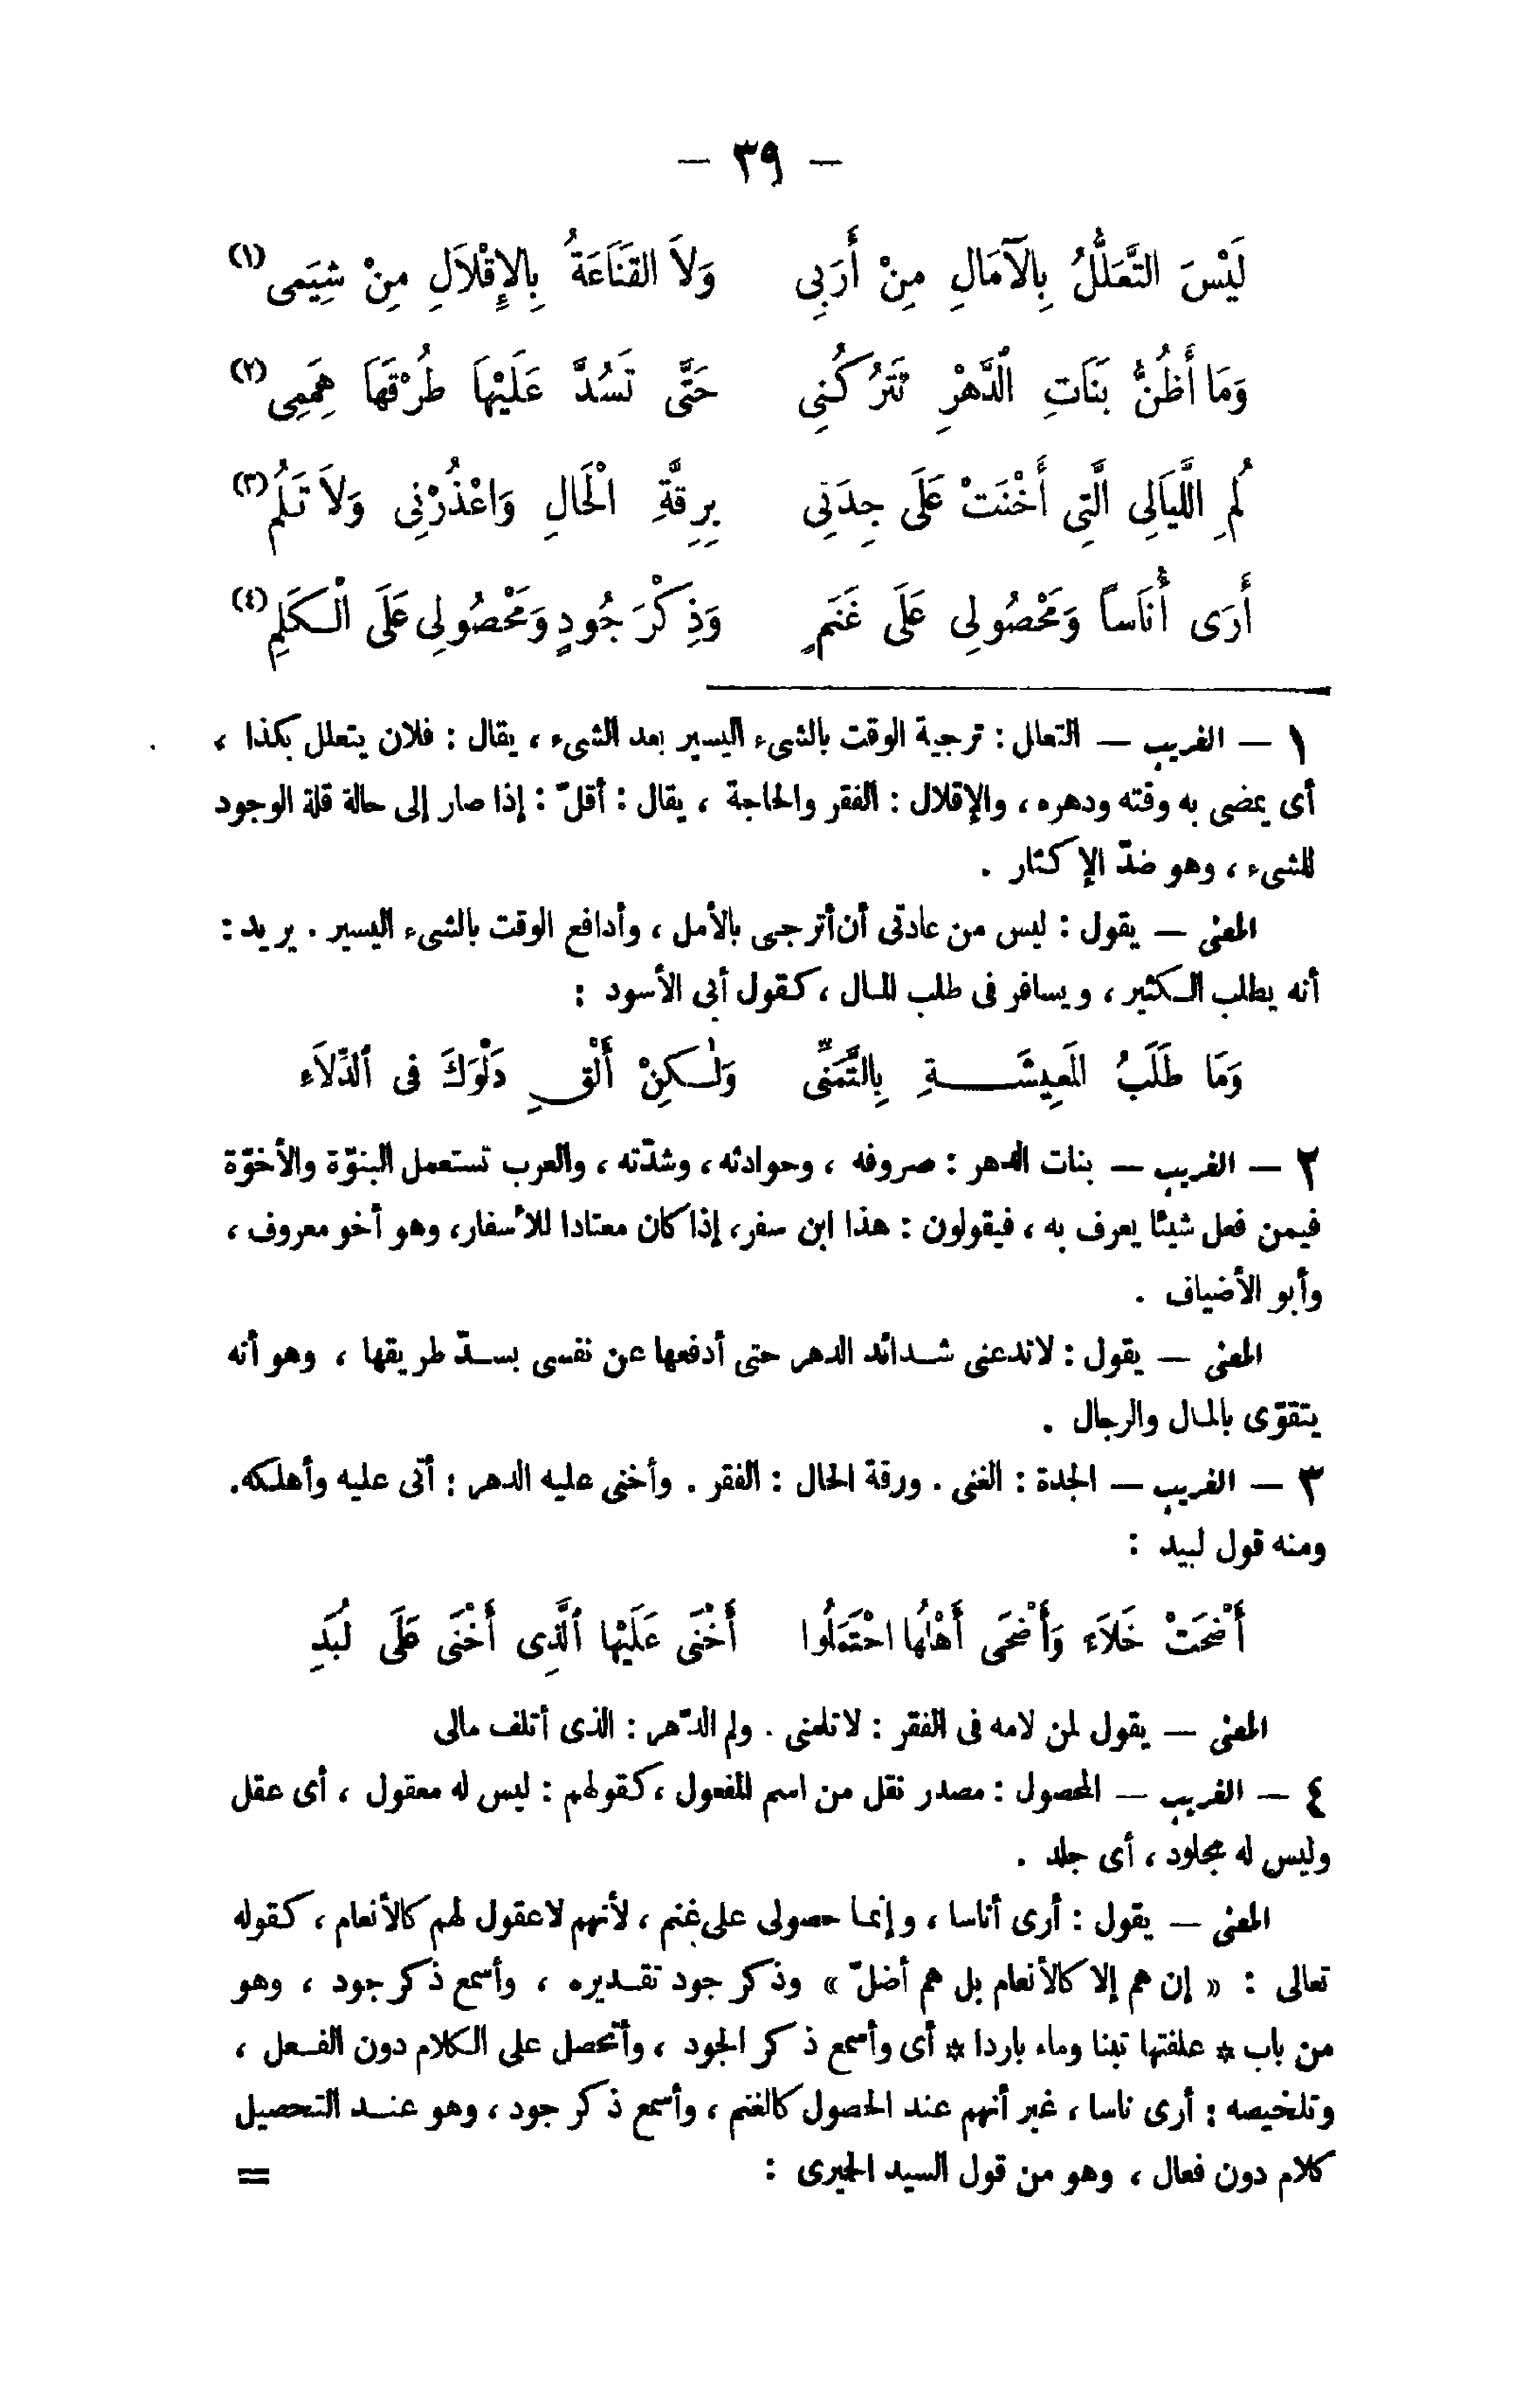 — ٣٩ —
لَيْسَ التَّعَلُّلُ بِالْآمَالِ مِنْ أَرَبِى وَلَا الْقَنَاعَةُ بِالْإِقْلَالِ مِنْ شِيَمِى (١)
وَمَا أَظُنُّ بَنَاتِ الدَّهْرِ تَتْرُكُنِى حَتَّى تَسُدَّ عَلَيْهَا طُرْقَهَا هِمَمِى (٢)
لُمِ اللَّيَالِى الَّتِى أَخْنَتْ عَلَى جِدَتِى بِرِقَّةِ الْحَالِ وَاعْذُرْنِى وَلَا تَلُمِ (٣)
أَرَى أُنَاسًا وَمَحْصُولِى عَلَى غَنَمٍ وَذِكْرَ جُودٍ وَمَحْصُولِى عَلَى الْكَلِمِ (٤)
١ — الغريب — التعلل : ترجية الوقت بالشىء اليسير بعد الشىء ، يقال : فلان يتعلل بكذا ،
أى يمضى به وقته ودهره ، والإقلال : الفقر والحاجة ، يقال : أقلّ : إذا صار إلى حالة قلة الوجود
للشىء ، وهو ضدّ الإكثار .
المعنى — يقول : ليس من عادتى أن أترجى بالأمل ، وأدافع الوقت بالشىء اليسير . يريد :
أنه يطلب الكثير ، ويسافر فى طلب المال ، كقول أبى الأسود :
وَمَا طَلَبُ الْمَعِيشَةِ بِالتَّمَنِّى وَلٰكِنْ أَلْقِ دَلْوَكَ فِى الدِّلَاءِ
٢ — الغريب — بنات الدهر : صروفه ، وحوادثه ، وشدّته ، والعرب تستعمل البنوّة والأخوّة
فيمن فعل شيئا يعرف به ، فيقولون : هذا ابن سفر ، إذا كان معتادا للأسفار ، وهو أخو معروف ،
وأبو الأضياف .
المعنى — يقول : لاتدعنى شدائد الدهر حتى أدفعها عن نفسى بسدّ طريقها ، وهو أنه
يتقوّى بالمال والرجال .
٣ — الغريب — الجدة : الغنى . ورقة الحال : الفقر . وأخنى عليه الدهر : أتى عليه وأهلكه .
ومنه قول لبيد :
أَضْحَتْ خَلَاءً وَأَضْحَى أَهْلُهَا احْتَمَلُوا أَخْنَى عَلَيْهَا الَّذِى أَخْنَى عَلَى لُبَدِ
المعنى — يقول لمن لامه فى الفقر : لاتلمنى . ولم الدّهر : الذى أتلف مالى
٤ — الغريب — المحصول : مصدر نقل من اسم المفعول ، كقولهم : ليس له معقول ، أى عقل
وليس له مجلود ، أى جلد .
المعنى — يقول : أرى أناسا ، وإنما حصولى على غنم ، لأنهم لاعقول لهم كالأنعام ، كقوله
تعالى : « إن هم إلا كالأنعام بل هم أضلّ » وذكر جود تقديره ، وأسمع ذكر جود ، وهو
من باب * علفتها تبنا وماء باردا * أى وأسمع ذكر الجود ، وأتحصل على الكلام دون الفعل ،
وتلخيصه : أرى ناسا ، غير أنهم عند الحصول كالغنم ، وأسمع ذكر جود ، وهو عند التحصيل
كلام دون فعال ، وهو من قول السيد الحميرى : =